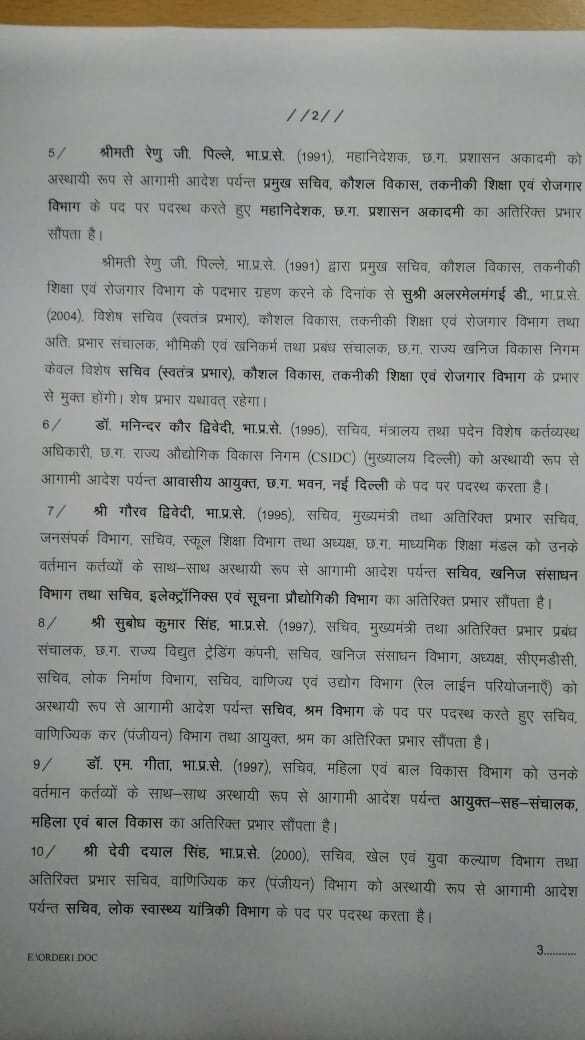 //2//
5/ श्रीमती रेणु जी. पिल्ले, भा.प्र.से. (1991), महानिदेशक, छ.ग. प्रशासन अकादमी को
अस्थायी रूप से आगामी आदेश पर्यन्त प्रमुख सचिव, कौशल विकास, तकनीकी शिक्षा एवं रोजगार
विभाग के पद पर पदस्थ करते हुए महानिदेशक, छ.ग. प्रशासन अकादमी का अतिरिक्त प्रभार
सौंपता है।
श्रीमती रेणु जी. पिल्ले, भा.प्र.से. (1991) द्वारा प्रमुख सचिव, कौशल विकास, तकनीकी
शिक्षा एवं रोजगार विभाग के पदभार ग्रहण करने के दिनांक से सुश्री अलरमेलमंगई डी., भा.प्र.से.
(2004), विशेष सचिव (स्वतंत्र प्रभार), कौशल विकास, तकनीकी शिक्षा एवं रोजगार विभाग तथा
अति. प्रभार संचालक, भौमिकी एवं खनिकर्म तथा प्रबंध संचालक, छ.ग. राज्य खनिज विकास निगम
केवल विशेष सचिव (स्वतंत्र प्रभार), कौशल विकास, तकनीकी शिक्षा एवं रोजगार विभाग के प्रभार
से मुक्त होंगी। शेष प्रभार यथावत् रहेगा।
6/ डॉ. मनिन्दर कौर द्विवेदी, भा.प्र.से. (1995), सचिव, मंत्रालय तथा पदेन विशेष कर्तव्यस्थ
अधिकारी, छ.ग. राज्य औद्योगिक विकास निगम (CSIDC) (मुख्यालय दिल्ली) को अस्थायी रूप से
आगामी आदेश पर्यन्त आवासीय आयुक्त, छ.ग. भवन, नई दिल्ली के पद पर पदस्थ करता है।
7/ श्री गौरव द्विवेदी, भा.प्र.से. (1995), सचिव, मुख्यमंत्री तथा अतिरिक्त प्रभार सचिव,
जनसंपर्क विभाग, सचिव, स्कूल शिक्षा विभाग तथा अध्यक्ष, छ.ग. माध्यमिक शिक्षा मंडल को उनके
वर्तमान कर्तव्यों के साथ–साथ अस्थायी रूप से आगामी आदेश पर्यन्त सचिव, खनिज संसाधन
विभाग तथा सचिव, इलेक्ट्रॉनिक्स एवं सूचना प्रौद्योगिकी विभाग का अतिरिक्त प्रभार सौंपता है।
8/ श्री सुबोध कुमार सिंह, भा.प्र.से. (1997), सचिव, मुख्यमंत्री तथा अतिरिक्त प्रभार प्रबंध
संचालक, छ.ग. राज्य विद्युत ट्रेडिंग कंपनी, सचिव, खनिज संसाधन विभाग, अध्यक्ष, सीएमडीसी,
सचिव, लोक निर्माण विभाग, सचिव, वाणिज्य एवं उद्योग विभाग (रेल लाईन परियोजनाएँ) को
अस्थायी रूप से आगामी आदेश पर्यन्त सचिव, श्रम विभाग के पद पर पदस्थ करते हुए सचिव,
वाणिज्यिक कर (पंजीयन) विभाग तथा आयुक्त, श्रम का अतिरिक्त प्रभार सौंपता है।
9/ डॉ. एम. गीता, भा.प्र.से. (1997), सचिव, महिला एवं बाल विकास विभाग को उनके
वर्तमान कर्तव्यों के साथ–साथ अस्थायी रूप से आगामी आदेश पर्यन्त आयुक्त–सह–संचालक,
महिला एवं बाल विकास का अतिरिक्त प्रभार सौंपता है।
10/ श्री देवी दयाल सिंह, भा.प्र.से. (2000), सचिव, खेल एवं युवा कल्याण विभाग तथा
अतिरिक्त प्रभार सचिव, वाणिज्यिक कर (पंजीयन) विभाग को अस्थायी रूप से आगामी आदेश
पर्यन्त सचिव, लोक स्वास्थ्य यांत्रिकी विभाग के पद पर पदस्थ करता है।
3...........
E:\ORDER1.DOC